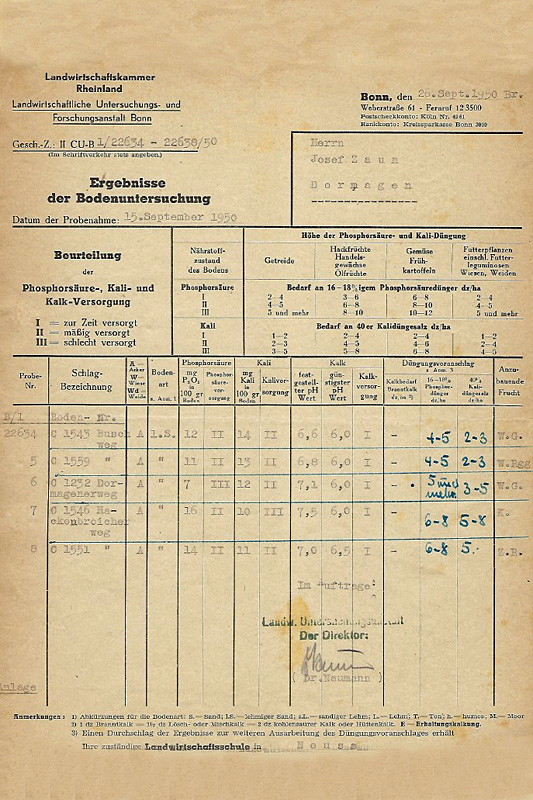 Landwirtschaftskammer
Rheinland
Landwirtschaftliche Untersuchungs- und
Forschungsanstalt Bonn
Bonn, den 26.Sept.1950 Br.
Weberstraße 61 - Fernruf 12 3500
Postscheckkonto: Köln Nr. 4341
Bankkonto: Kreissparkasse Bonn 3010
Gesch.-Z.: II CU-B 1/22634 - 22638/50
(Im Schriftverkehr stets angeben.)
Herrn
Josef Zaun
Dormagen
Ergebnisse
der Bodenuntersuchung
Datum der Probenahme: 15.September 1950
Beurteilung
der
Phosphorsäure-, Kali- und
Kalk-Versorgung
I = zur Zeit versorgt
II = mäßig versorgt
III = schlecht versorgt
Nährstoffzustand des Bodens
Höhe der Phosphorsäure- und Kali-Düngung
Getreide
Hackfrüchte Handelsgewächse Ölfrüchte
Gemüse Frühkartoffeln
Futterpflanzen einschl. Futterleguminosen Wiesen, Weiden
Phosphorsäure Bedarf an 16-18%igem Phosphorsäuredünger dz/ha
I 2-4 3-6 6-8 2-4
II 4-5 6-8 8-10 4-5
III 5 und mehr 8-10 10-12 5 und mehr
Kali Bedarf an 40er Kalidüngesalz dz/ha
I 1-2 2-4 2-4 1-2
II 2-3 4-5 4-6 2-4
III 3-5 5-8 6-8 4-5
Probe-Nr.
Schlag-Bezeichnung
A = Acker W = Wiese Wd = Weide
Bodenart s. Anm. 1
Phosphorsäure
mg P₂O₅ in 100 gr Boden
Phosphorsäureversorgung
Kali
mg Kali in 100 gr Boden
Kaliversorgung
Kalk
festgestellter pH Wert
günstigster pH Wert
Kalkversorgung
Düngungsvoranschlag
s. Anm. 3
Kalkbedarf Branntkalk dz/ha ²)
16-18% Phosphordünger dz/ha
40% Kalidüngesalz dz/ha
Anzubauende Frucht
B/1 Boden- Nr.
22634 C 1543 Busch weg A l.S. 12 II 14 II 6,6 6,0 I - 4-5 2-3 W.G.
5 C 1559 " A " 11 II 13 II 6,8 6,0 I - 4-5 2-3 W.Rgg
6 C 1232 Dormagenerweg A " 7 III 12 II 7,1 6,0 I - 5 und mehr 3-5 W.G.
7 C 1546 Hackenbroicher weg A " 16 II 10 III 7,5 6,0 I - 6-8 5-8 K.
8 C 1551 " A " 14 II 11 II 7,0 6,5 I - 6-8 5. Z.R.
Im Auftrage:
Landw. Untersuchungsanstalt
Der Direktor:
(Dr.Neumann )
Anlage
Anmerkungen: 1) Abkürzungen für die Bodenart: S.—Sand; lS.—lehmiger Sand; sL.—sandiger Lehm; L.—Lehm; T.—Ton; h.—humos; M.—Moor
2) 1 dz Branntkalk = 1½ dz Lösch- oder Mischkalk = 2 dz kohlensaurer Kalk oder Hüttenkalk. E = Erhaltungskalkung.
3) Einen Durchschlag der Ergebnisse zur weiteren Ausarbeitung des Düngungsvoranschlages erhält
Ihre zuständige Landwirtschaftsschule in Neuss